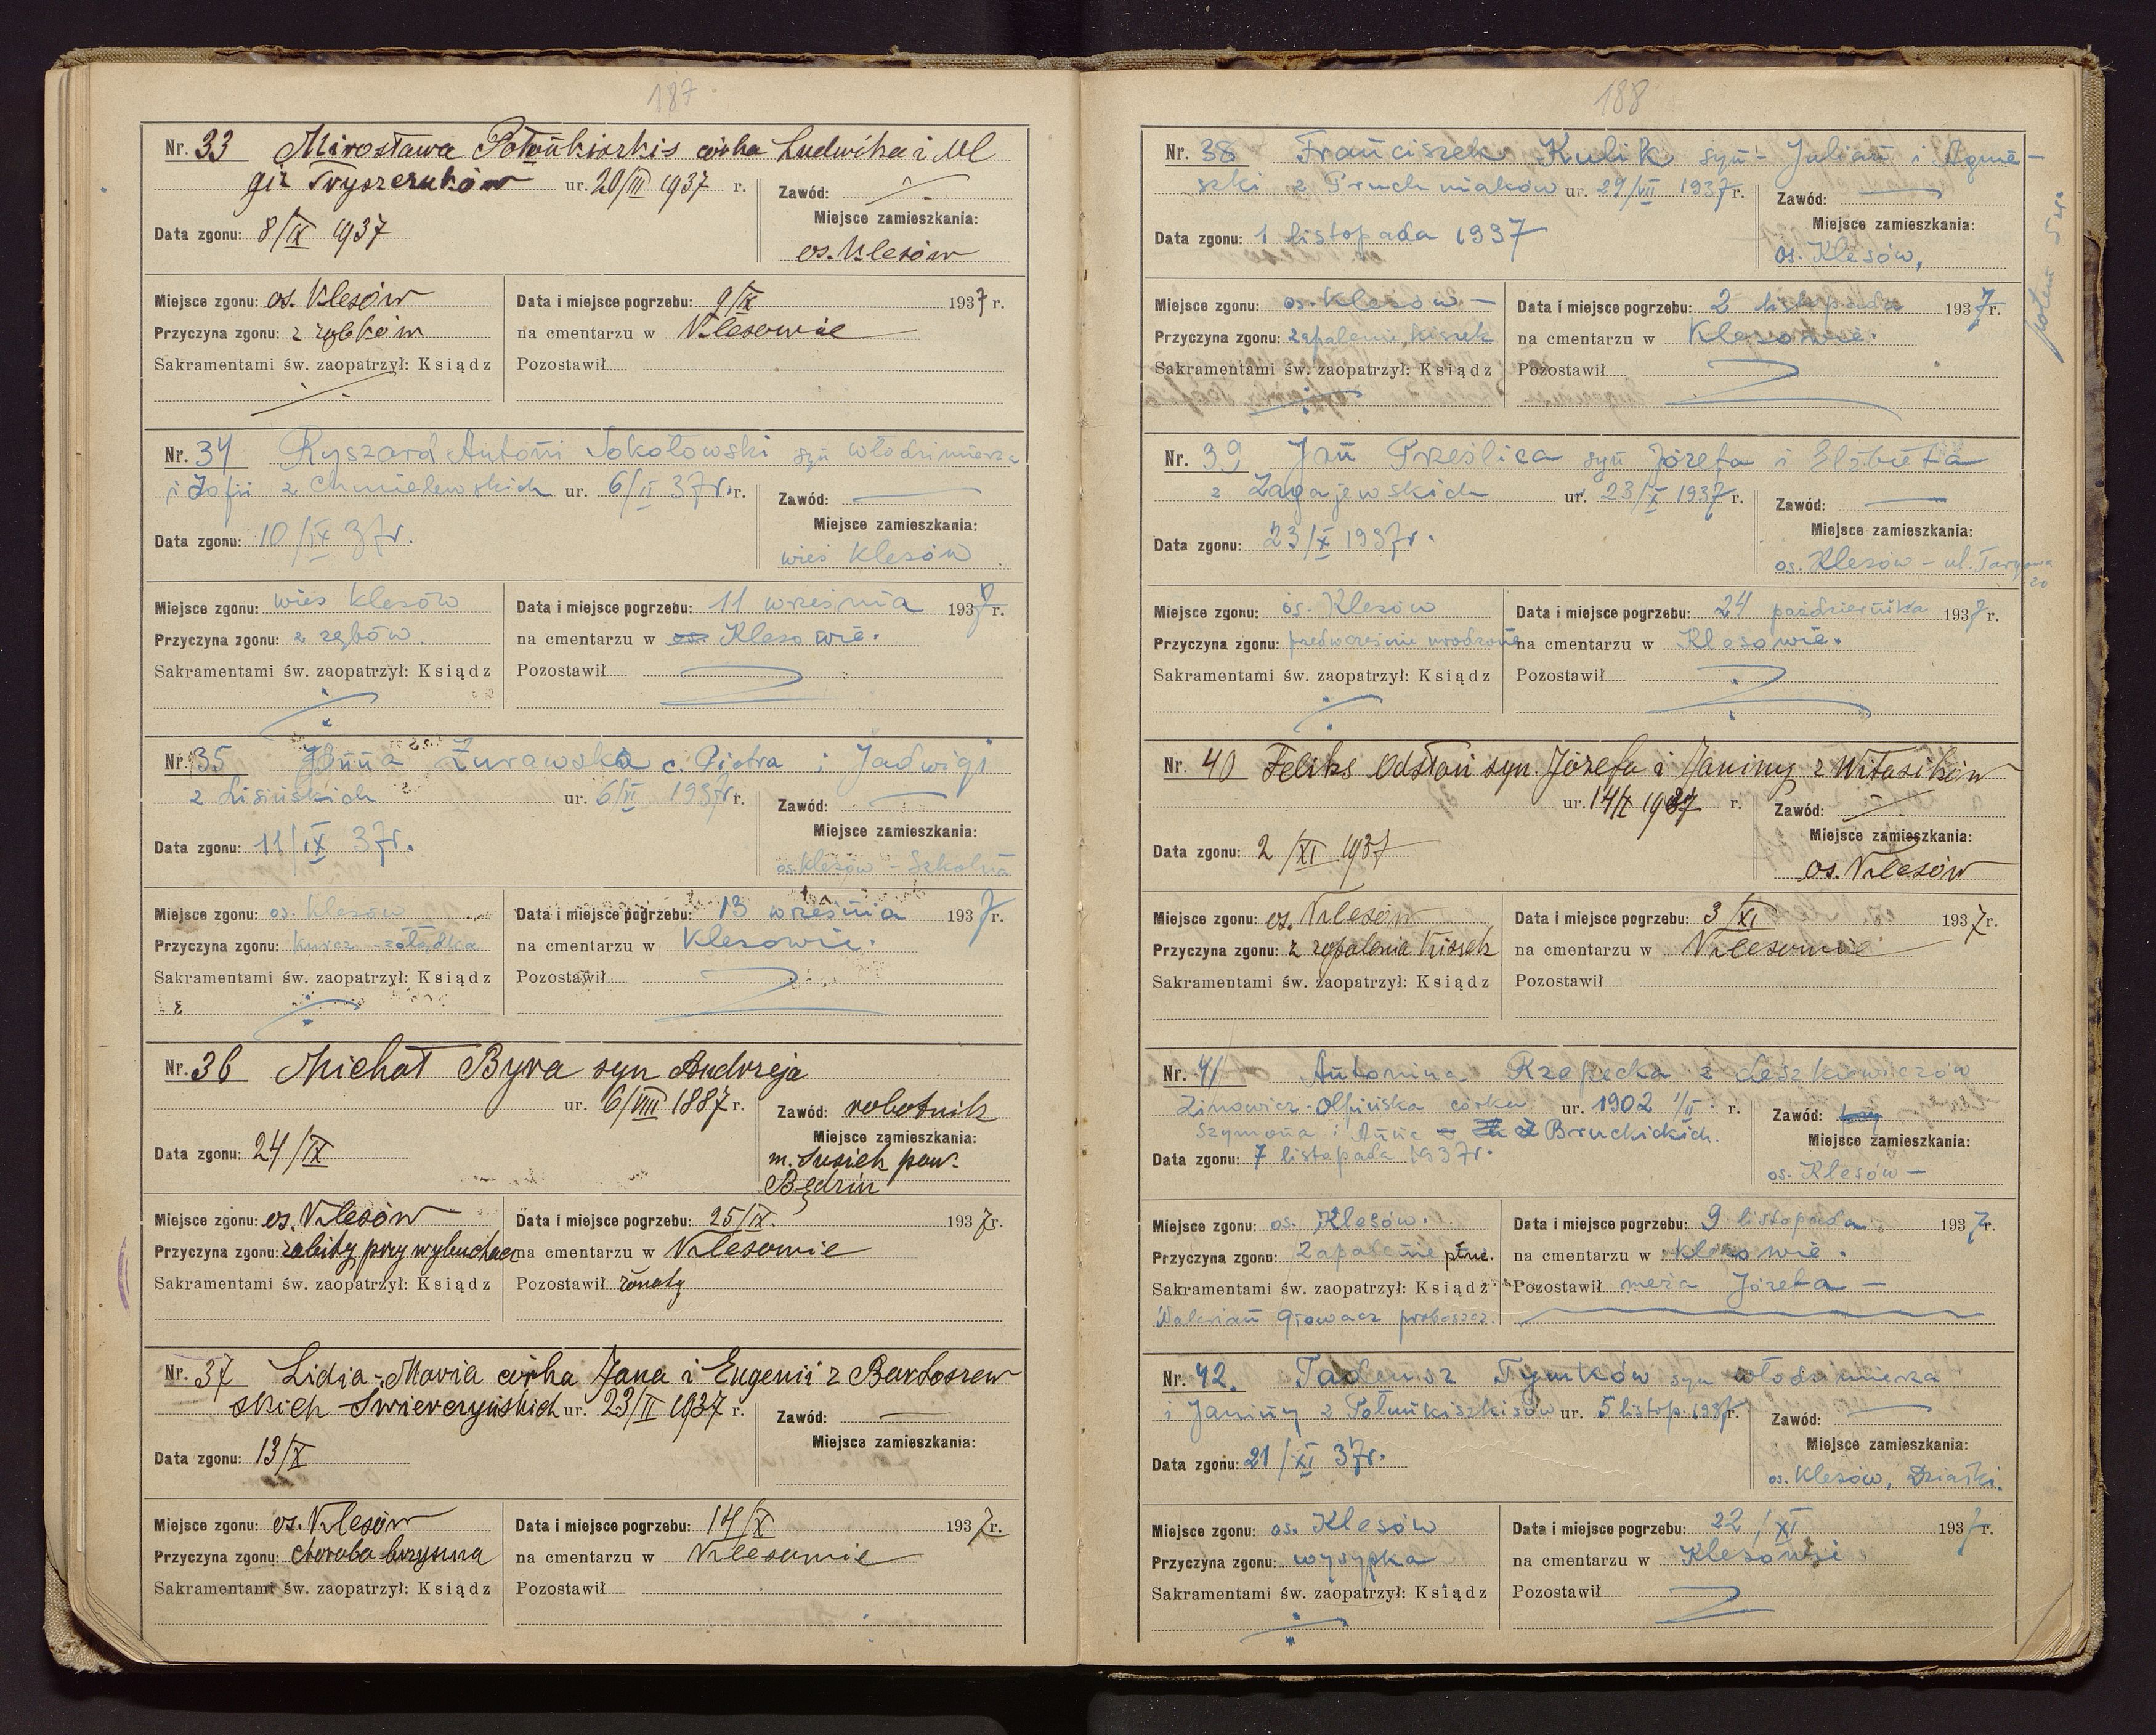 187
Nr. 33 Mirosława Połuńkiszkis córka Ludwika i Ml
gii Tryszczuków ur. 20/III 1937 r. Zawód:
Miejsce zamieszkania:
Data zgonu: 8/IX 1937
os. Klesów
Miejsce zgonu: os. Klesów Data i miejsce pogrzebu: 9/IX 1937 r.
Przyczyna zgonu: z ząbków na cmentarzu w Klesowie
Sakramentami św. zaopatrzył: Ksiądz Pozostawił
Nr. 34 Ryszard Antoni Sokołowski syn Włodzimierza
i Zofii z Chmielewskich ur. 6/II 37r. r. Zawód: —
Miejsce zamieszkania:
Data zgonu: 10/IX 37r.
wieś Klesów
Miejsce zgonu: wieś Klesów Data i miejsce pogrzebu: 11 września 1937 r.
Przyczyna zgonu: z zębów. na cmentarzu w Klesowie.
Sakramentami św. zaopatrzył: Ksiądz Pozostawił
Nr. 35 Żurawska c. Piotra i Jadwigi
z Lisińskich ur. 6/VI 1937 r. Zawód: —
Miejsce zamieszkania:
Data zgonu: 11/IX 37r.
os. Klesów - Szkolna
Miejsce zgonu: os. Klesów Data i miejsce pogrzebu: 13 września 1937 r.
Przyczyna zgonu: kurcz żołądka na cmentarzu w Klesowie.
Sakramentami św. zaopatrzył: Ksiądz Pozostawił
Nr. 36 Michał Byra syn Andrzeja
ur. 6/VIII 1887 r. Zawód: robotnik
Miejsce zamieszkania:
Data zgonu: 24/IX m. Susiek pow.
Będzin
Miejsce zgonu: os. Klesów Data i miejsce pogrzebu: 25/IX. 1937 r.
Przyczyna zgonu: zabity przy wybuchach na cmentarzu w Klesowie
Sakramentami św. zaopatrzył: Ksiądz Pozostawił żonaty
Nr. 37 Lidia-Maria córka Jana i Eugenii z Bartoszew
skich Świerczyńskich ur. 23/II 1937 r. Zawód: —
Miejsce zamieszkania:
Data zgonu: 13/X
Miejsce zgonu: os. Klesów Data i miejsce pogrzebu: 14/X 1937 r.
Przyczyna zgonu: choroba brzyszna na cmentarzu w Klesowie
Sakramentami św. zaopatrzył: Ksiądz Pozostawił
188
Nr. 38 Franciszek Kulik syn Juliań i Agnie-
szki z Pruchniaków ur. 29/VII 1937 r. Zawód:
Miejsce zamieszkania:
Data zgonu: 1 listopada 1937
os. Klesów,
Miejsce zgonu: os. Klesów — Data i miejsce pogrzebu: 2 listopada 1937 r.
Przyczyna zgonu: zapalenie kiszek na cmentarzu w Klesowie.
Sakramentami św. zaopatrzył: Ksiądz Pozostawił
Nr. 39 Jan Prześlica syn Józefa i Elżbieta
z Zagajewskich ur. 23/X 1937 r. Zawód: —
Miejsce zamieszkania:
Data zgonu: 23/X 1937r.
os. Klesów - ul. Targowa
20
Miejsce zgonu: os. Klesów Data i miejsce pogrzebu: 24 października 1937 r.
Przyczyna zgonu: przedwcześnie urodzone na cmentarzu w Klesowie.
Sakramentami św. zaopatrzył: Ksiądz Pozostawił
Nr. 40 Feliks Odstoń syn Józefa i Janiny z Witasików
ur. 14/X 1937 r. Zawód:
Miejsce zamieszkania:
Data zgonu: 2/XI 1937
os. Klesów
Miejsce zgonu: os. Klesów Data i miejsce pogrzebu: 3/XI 1937 r.
Przyczyna zgonu: z zapalenia kiszek na cmentarzu w Klesowie
Sakramentami św. zaopatrzył: Ksiądz Pozostawił
Nr. 41 Antonina Rzepecka z Leszkiewiczów
Zinowicz-Olpińska córka ur. 1902 1/II r. Zawód:
Szymona i Anna Bruckickich.
Miejsce zamieszkania:
Data zgonu: 7 listopada 1937r.
os. Klesów —
Miejsce zgonu: os. Klesów. Data i miejsce pogrzebu: 9 listopada 1937 r.
Przyczyna zgonu: Zapalenie płuc. na cmentarzu w Klesowie.
Sakramentami św. zaopatrzył: Ksiądz Pozostawił męża Józefa —
Walerian Głowacz proboszcz.
Nr. 42. Tadeusz Tymków syn Włodzimierza
i Janiny z Połuńkiszkisów ur. 5 listop. 1937 r. Zawód: —
Miejsce zamieszkania:
Data zgonu: 21/XI 37r.
os. Klesów, Działki.
Miejsce zgonu: os. Klesów Data i miejsce pogrzebu: 22/XI 1937 r.
Przyczyna zgonu: wysypka na cmentarzu w Klesowie.
Sakramentami św. zaopatrzył: Ksiądz Pozostawił